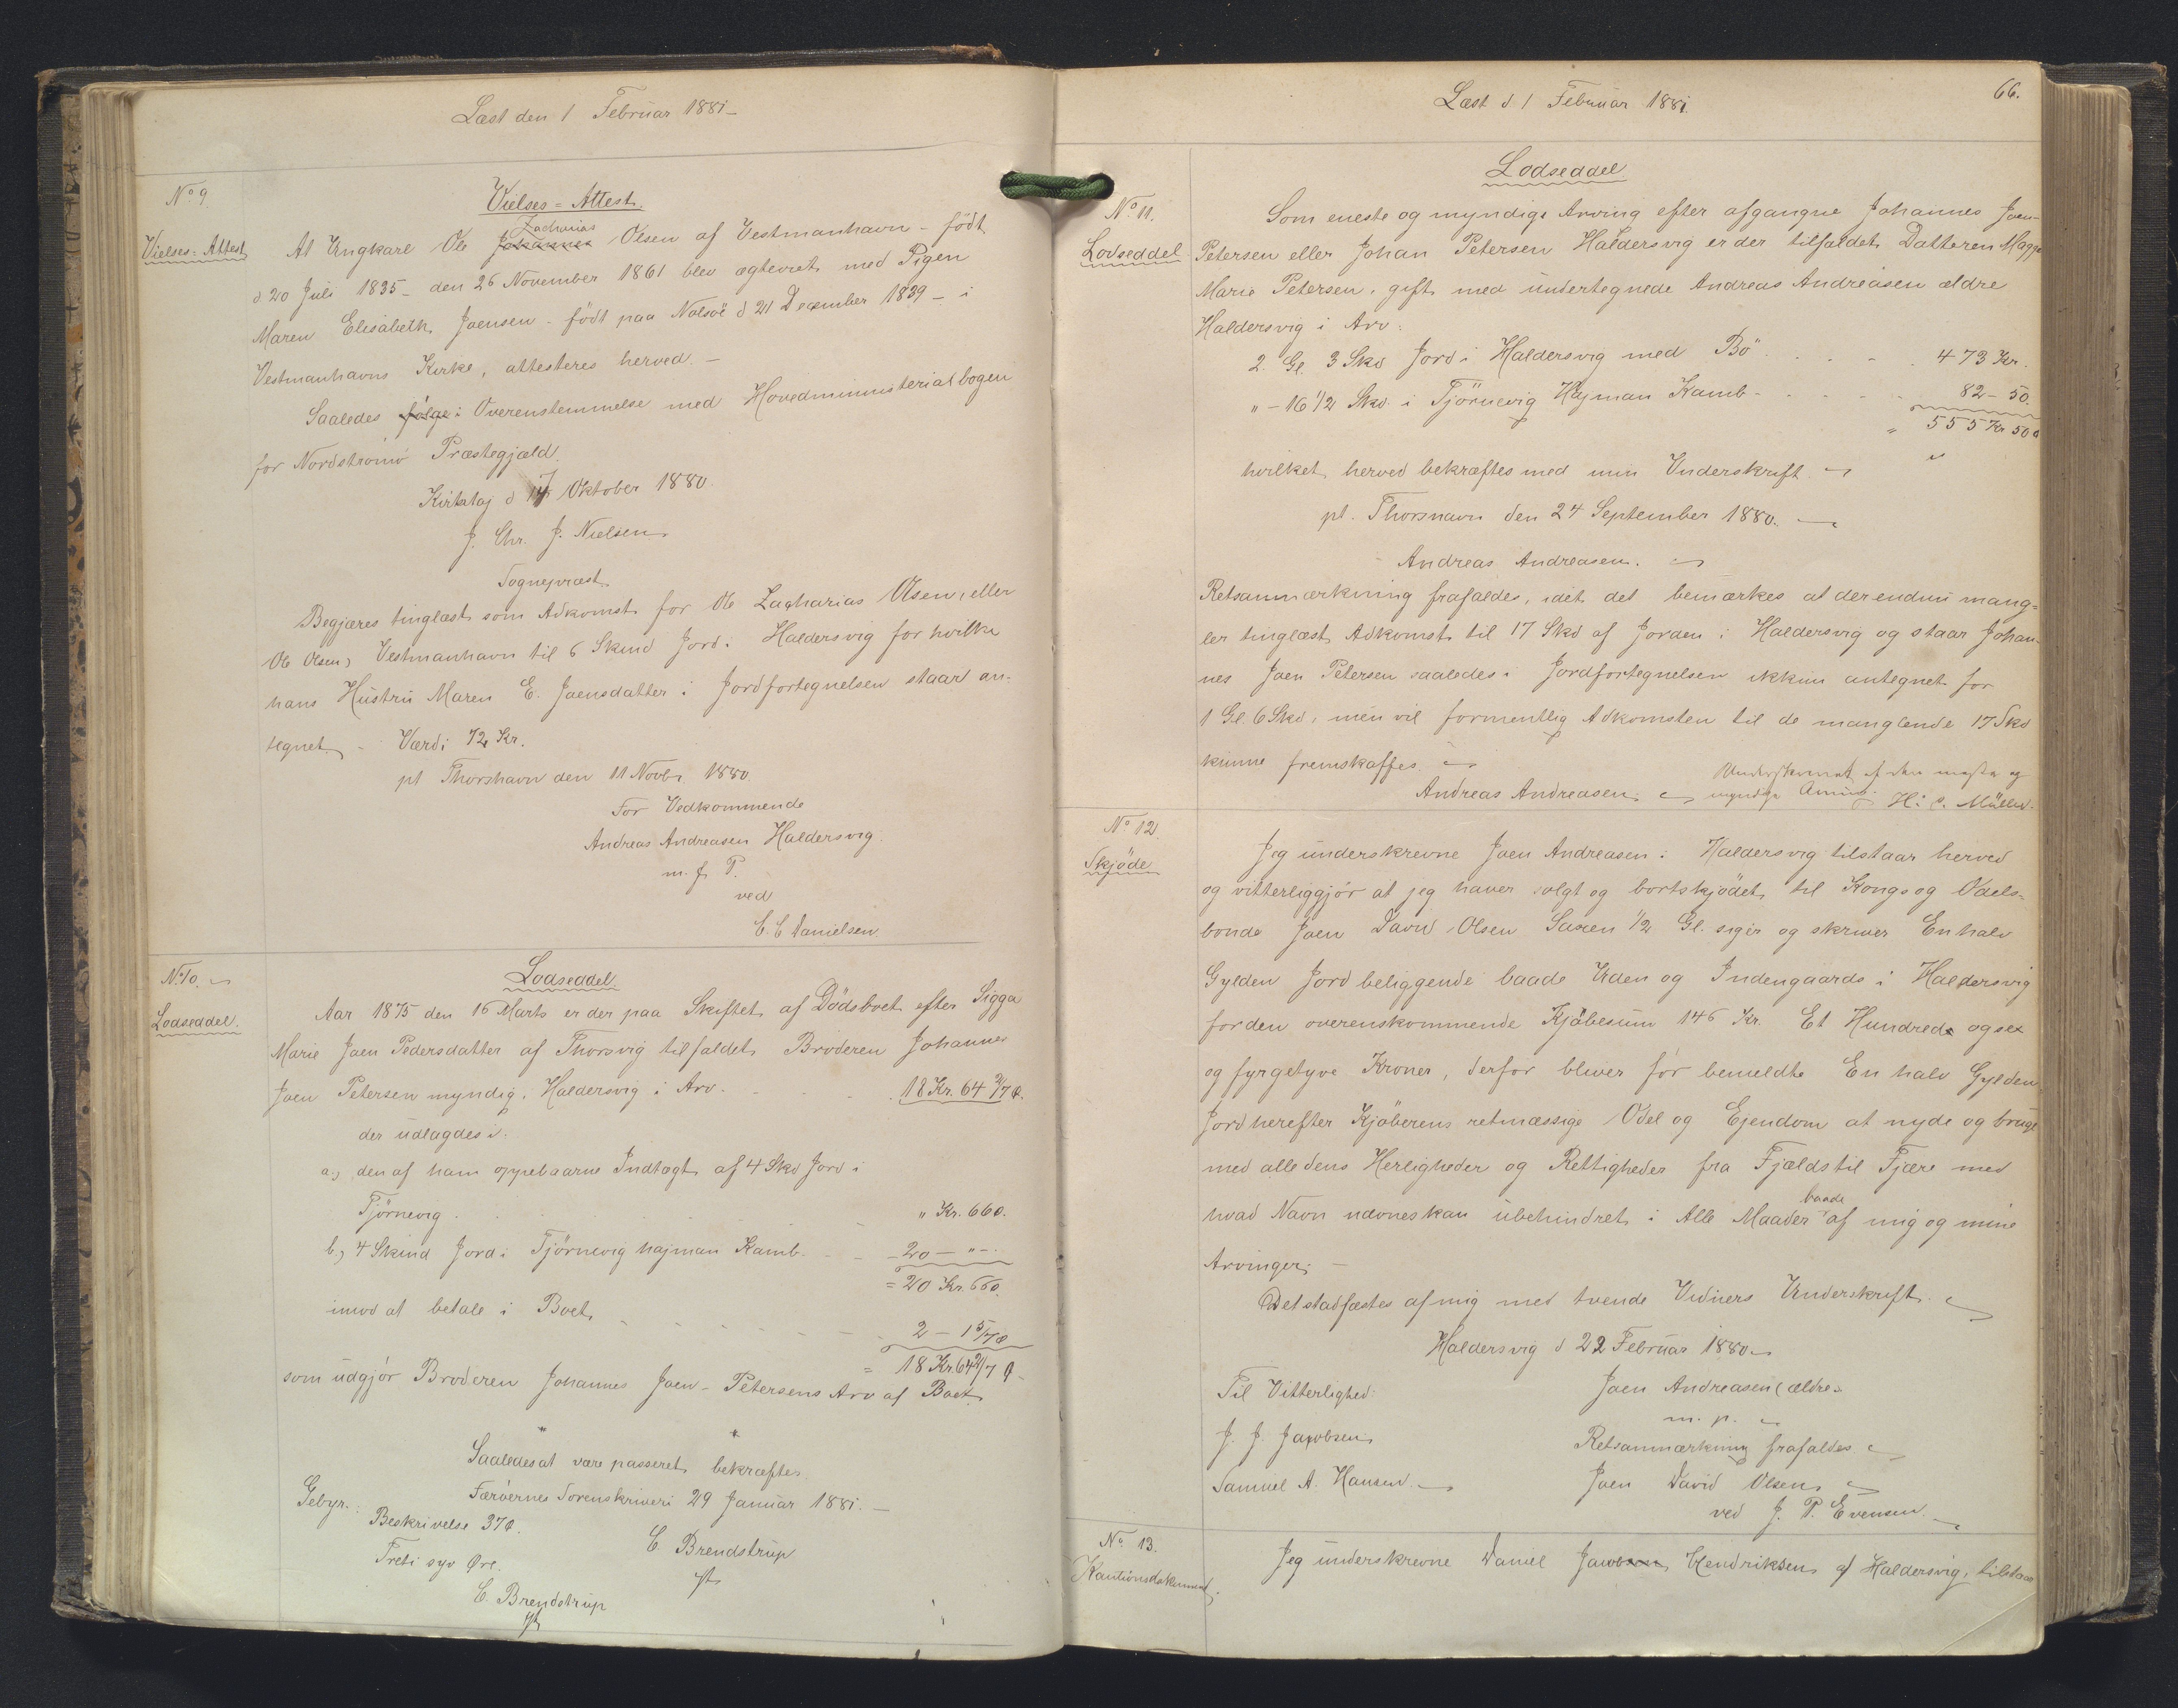 Læst den 1 Februar 1881 –
No 9.
Vielses=Attest.
Vielses=Attest
Zacharias
At Ungkarl Ole Johannes Olsen af Vestmanhavn – født
d 20 Juli 1835 – den 26 November 1861 blev ægteviet med Pigen
Maren Elisabeth Joensen – født paa Nolsö d 21 December 1839 – i
Vestmanhavns Kirke, attesteres herved. –
Saaledes følge i Overenstemmelse med Hovedministerialbogen
for Nordströmö Præstegjæld.
d 17 Oktober 1880.
J. Chr. J. Nielsen
Sognepræst
Begjæres tinglæst som Adkomst for Ole Zacharias Olsen, eller
Ole Olsen, Vestmanhavn til 6 Skind Jord i Haldersvig for hvilke
hans Hustru Maren E. Joensdatter i Jordfortegnelsen staar an-
tegnet. – Værdi 72 Kr.
pt Thorshavn den 11 Novbr 1880.
For Vedkommende
Andreas Andreasen Haldersvig.
m. f. P.
ved
C. C Danielsen.
No 10.
Lodseddel.
Lodseddel.
Aar 1875 den 16 Marts er der paa Skiftet af Dödsboet efter Sigga
Marie Joen Pedersdatter af Thorsvig tilfaldet Broderen Johannes
Joen Petersen myndig, Haldersvig i Arv. 18 Kr. 64 2/7 Ø.
der udlagdes i.
a., den af ham oppebaarne Indtægt af 4 Skd Jord i
Tjörnevig " Kr. 660.
b., 4 Skind Jord i Tjörnevig hajman Kamb. – 20 – " –
= 20 Kr. 660.
imod at betale i Boet 2 – 1 5/7 Ø
= 18 Kr. 64 2/7 Ø
som udgjör Broderen Johannes Joen – Petersens Arv af Boet.
Saaledes at være passeret bekræftes
Færöernes Sorenskriveri 29 Januar 1881. –
Gebyr.:
Beskrivelse 37 Ø.
C Brendstrup
Treti syv Øre.
C. Brendstrup
Læst d 1 Februar 1881.
66.
Lodseddel
No. 11.
Lodseddel
Som eneste og myndige Arving efter afgangne Johannes Joen-
Petersen eller Johan Petersen Haldersvig er der tilfaldet Datteren Magge
Marie Petersen, gift med undertegnede Andreas Andreasen ældre
Haldersvig i Arv:
2. Gl. 3 Skd Jord i Haldersvig med Bö 473 Kr.
" – 16 1/2 Skd. i Tjörnevig Hajman Kamb – 82 – 50.
" 555 Kr 50 Ø
hvilket herved bekræftes med min Underskrift.
pt. Thorshavn den 24 September 1880. –
Andreas Andreasen.
Retsanmærkning frafaldes, idet det bemærkes at der endnu mang=
ler tinglæst Adkomst til 17 Skd af Jorden i Haldersvig og staar Johan-
nes Joen Petersen saaledes i Jordfortegnelsen ikkun antegnet for
1 Gl. 6 Skd, men vil formentlig Adkomsten til de manglende 17 Skd
kunne fremskaffes.
Andreas Andreasen
myndige Arving. H: C. Müller.
No 12.
Skjöde
Jeg underskrevne Joen Andreasen i Haldersvig tilstaar herved
og vitterliggjör at jeg haver solgt og bortskjödet til Kongs og Odels-
bonde Joen David Olsen Saxen 1/2 Gl. siger og skriver En halv
Gylden Jord beliggende baade Uden og Indengaards i Haldersvig
for den overenskommende Kjöbesum 146 Kr. Et Hundrede og sex
og fyrgetyve Kroner, derfor bliver för bemeldte En halv Gylden
Jord herefter Kjöberens retmæssige Odel og Ejendom at nyde og bruge
med alle dens Herligheder og Rettigheder fra Fjælds til Fjære med
baade
hvad Navn nævnes kan ubehindret i Alle Maader af mig og mine
Arvinger. –
Det stadfæstes af mig med tvende Vidners Underskrift.
Haldersvig d 22 Februar 1880
Til Vitterlighed:
Joen Andreasen (ældre)
m. p.
J. J. Jacobsen
Retsanmærkning frafaldes.
Samuel A. Hansen
Joen David Olsen
ved J. P. Evensen.
No. 13.
Kautionsdokument.
Jeg underskrevne Daniel Jacobsen Hendriksen af Haldersvig, tilstaar